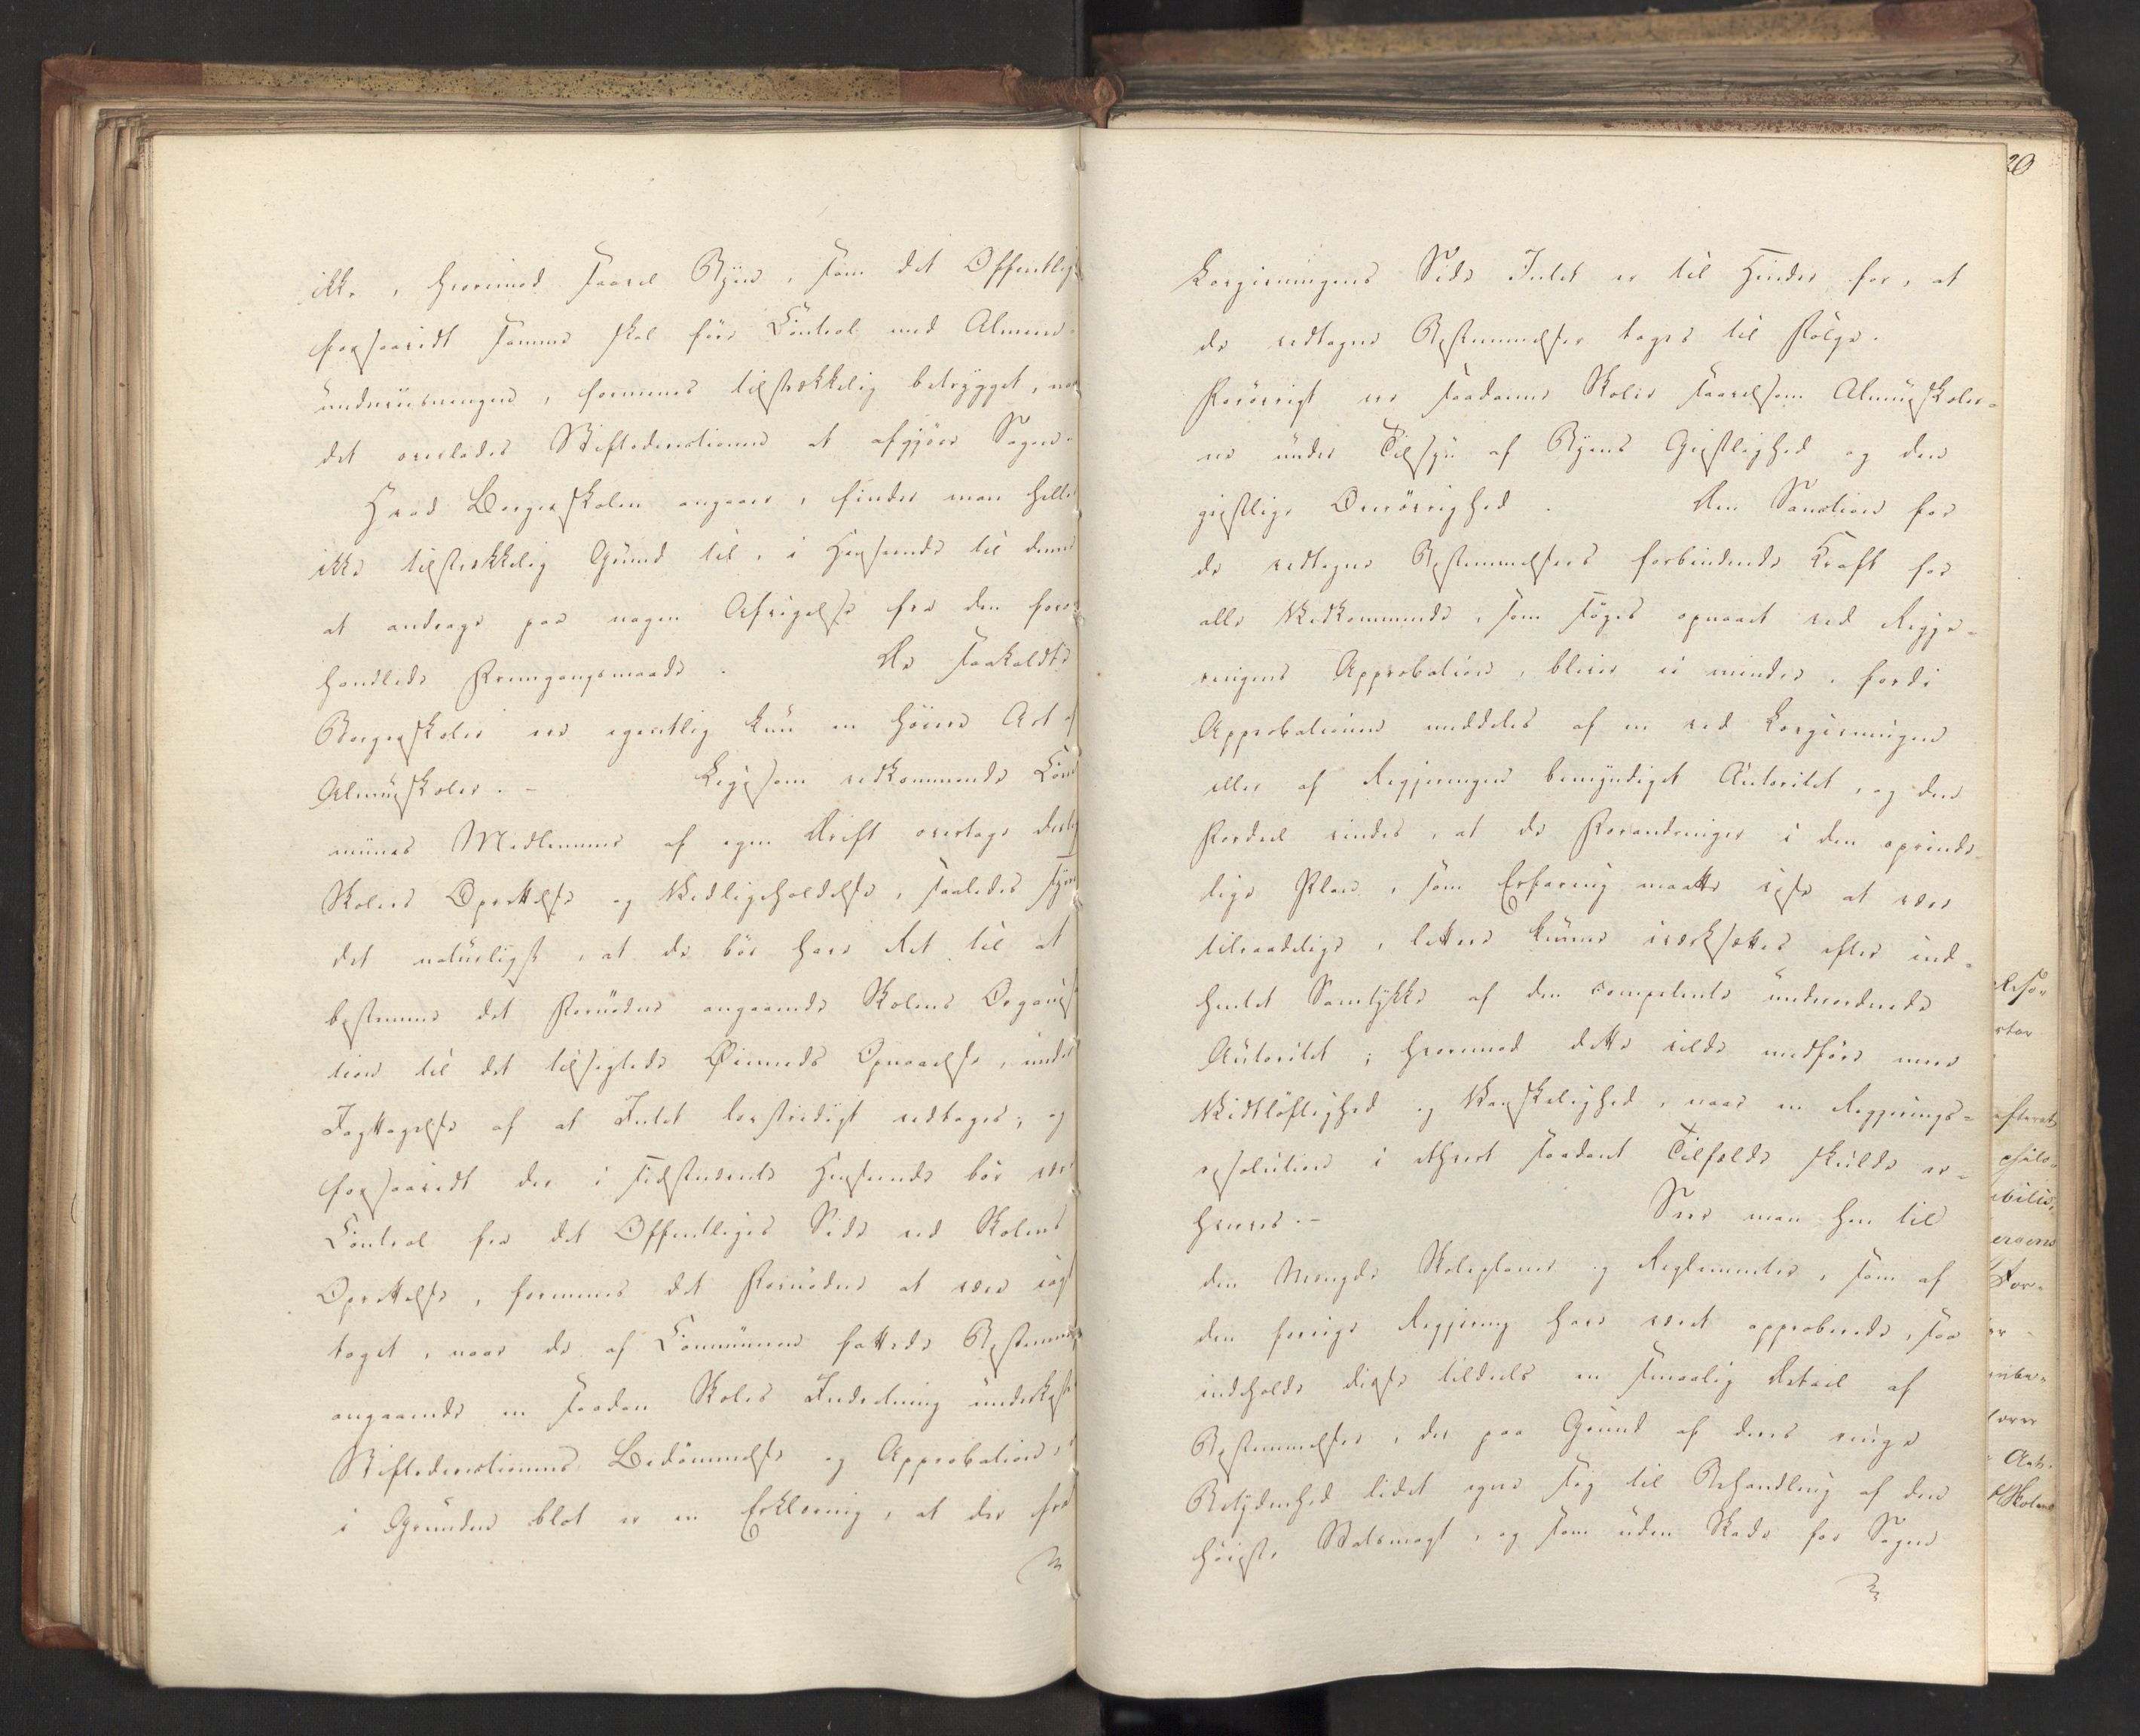 ikke, hvorimod saavel Byen, som det Offentlige
forsaavidt samme skal føre Control med Almue-
underviisningen, formenes tilstrækkelig betrygget, naar
det overlades Stiftsdirectionen at afgjøre Sagen.
Hvad Borgerskolen angaaer, finder man heller
ikke tilstrækkelig Grund til, i Henseende til denne
at andrage paa nogen Afvigelse fra den for-
handlede Fremgangsmaade. De saakaldte
Borgerskoler ere egentlig kun en høiere Art af
Almueskoler. – Ligesom vedkommende Com
munes Medlemmer af egen Drift overtage deslige
Skolers Oprettelse og Vedligeholdelse, saaledes synes
det naturligst, at de bør have Ret til at
bestemme det Fornødne angaaende Skolens Organisa
tion til det tilsigtede Øiemeds Opnaaelse, under
Iagttagelse af at Intet lovstridigt vedtages; og
forsaavidt der i sidstnævnte Henseende bør være
Control fra det Offentliges Side ved Skolens
Oprettelse, formenes det Fornødne at være iagt
taget, naar de af Communen fattede Bestemmelser
angaaende en saadan Skoles Indretning underkastes
Stiftsdirectionens Bedømmelse og Approbation,
i Grunden blot er en Erklæring, at der fra
20
Lovgivningens Side Intet er til Hinder for, at
de vedtagne Bestemmelser tages til Følge.
Forøvrigt ere saadanne Skoler saavelsom Almueskoler-
ne under Tilsyn af Byens Geistlighed og den
geistlige Overøvrighed. Den Sanction for
de vedtagne Bestemmelsers forbindende Kraft for
alle Vedkommende, som søges opnaaet ved Regje-
ringens Approbation, bliver ei mindre, fordi
Approbationen meddeles af en ved Lovgivningen
eller af Regjeringen bemyndiget Autoritet, og den
Fordeel vindes, at de Forandringer i den oprinde-
lige Plan, som Erfaring maatte vise at være
tilraadelige, lettere kunne iværksættes efter ind-
hentet Samtykke af den competente underordnede
Autoritet; hvorimod dette vilde medføre mere
Vidtløftighed og Vanskelighed, naar en Regjerings-
resolution i ethvert saadant Tilfælde skulde er-
hverves. – Seer man hen til
den Mængde Skoleplaner og Reglementer, som af
den forrige Regjering have været approberede, saa
indeholde disse tildeels en smaalig Detail af
Bestemmelser, der paa Grund af deres ringe
Betydenhed lidet egne sig til Behandling af den
høieste Statsmagt, og som uden Skade for Sagen